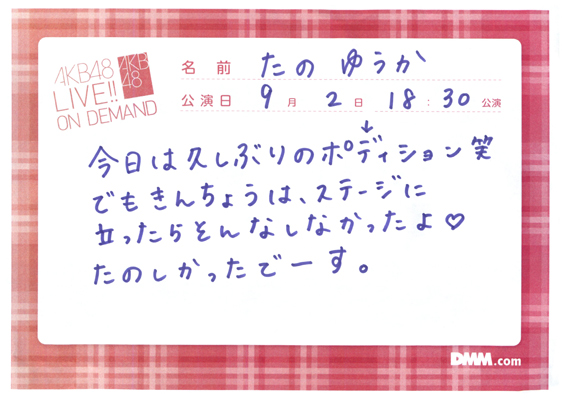 AKB48
LIVE!!
ON DEMAND
AKB
48
名前 たの ゆうか
公演日 9月 2日 18:30公演
今日は久しぶりのポディション笑
でもきんちょうは、ステージに
立ったらそんなしなかったよ♡
たのしかったでーす。
DMM.com